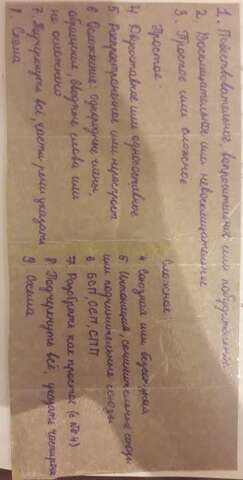 1. Повествовательное, вопросительное или побудительное
2. Восклицательное или невосклицательное
3. Простое или сложное
Простое:
4 Двусоставное или односоставное
5 Распространенное или нераспрост
6 Осложнение: однор. члены,
обращения, вводные слова или
не осложнено
7 Подчеркнуть все части речи указать
8 Схема
Сложное:
4 Союзная или бессоюзная
5 Интонация, сочинительные союзы
или подчинительные союзы
6 БСП, ССП, СПП
7 Разобрать как простое (с по 4)
8 Подчеркнуть всё, указать части речи
9 Схема